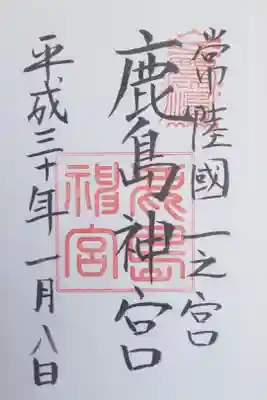 常陸國一之宮
鹿島神宮
平成三十年一月八日
鹿島神宮